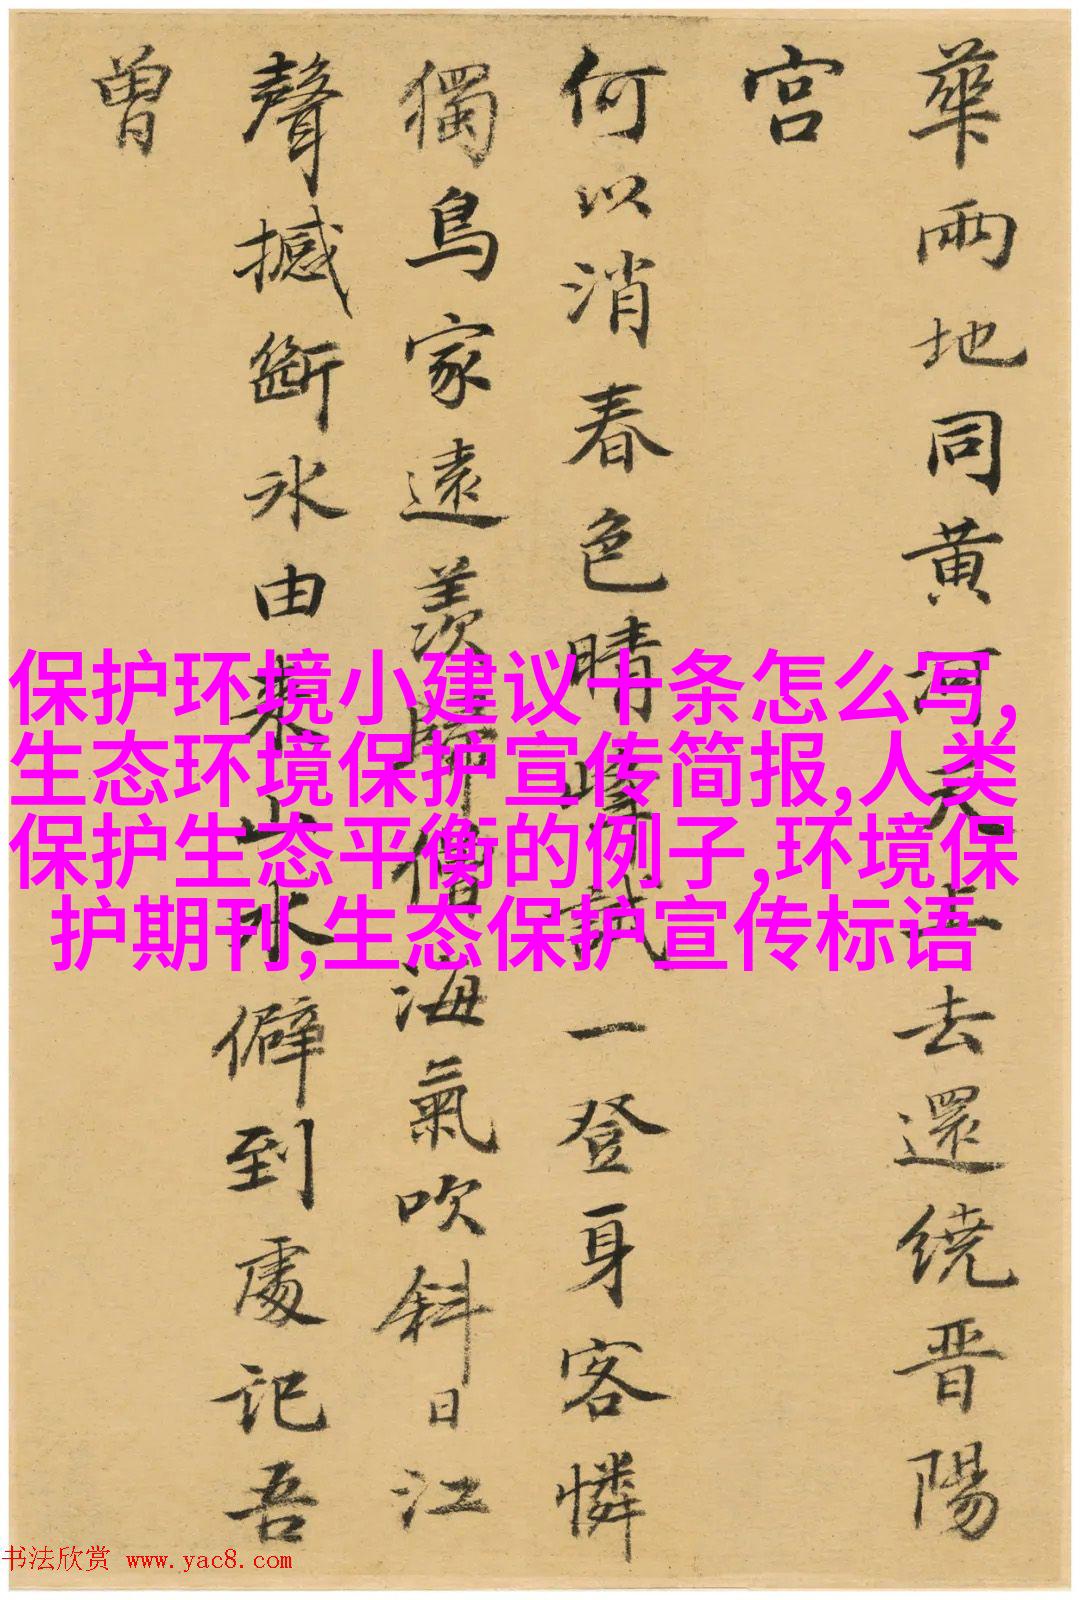 華兩地同黄河天上去還繞晋陽
宫
何以消春色晴峰試一登身客憐
獨鳥家遠羨歸僧海氣吹斜日江
聲撼斷冰由来山水僻到處記吾
曾
保护环境小建议十条怎么写,
生态环境保护宣传简报,人类
保护生态平衡的例子,环境保
护期刊,生态保护宣传标语
书法欣赏 www.yac8.com